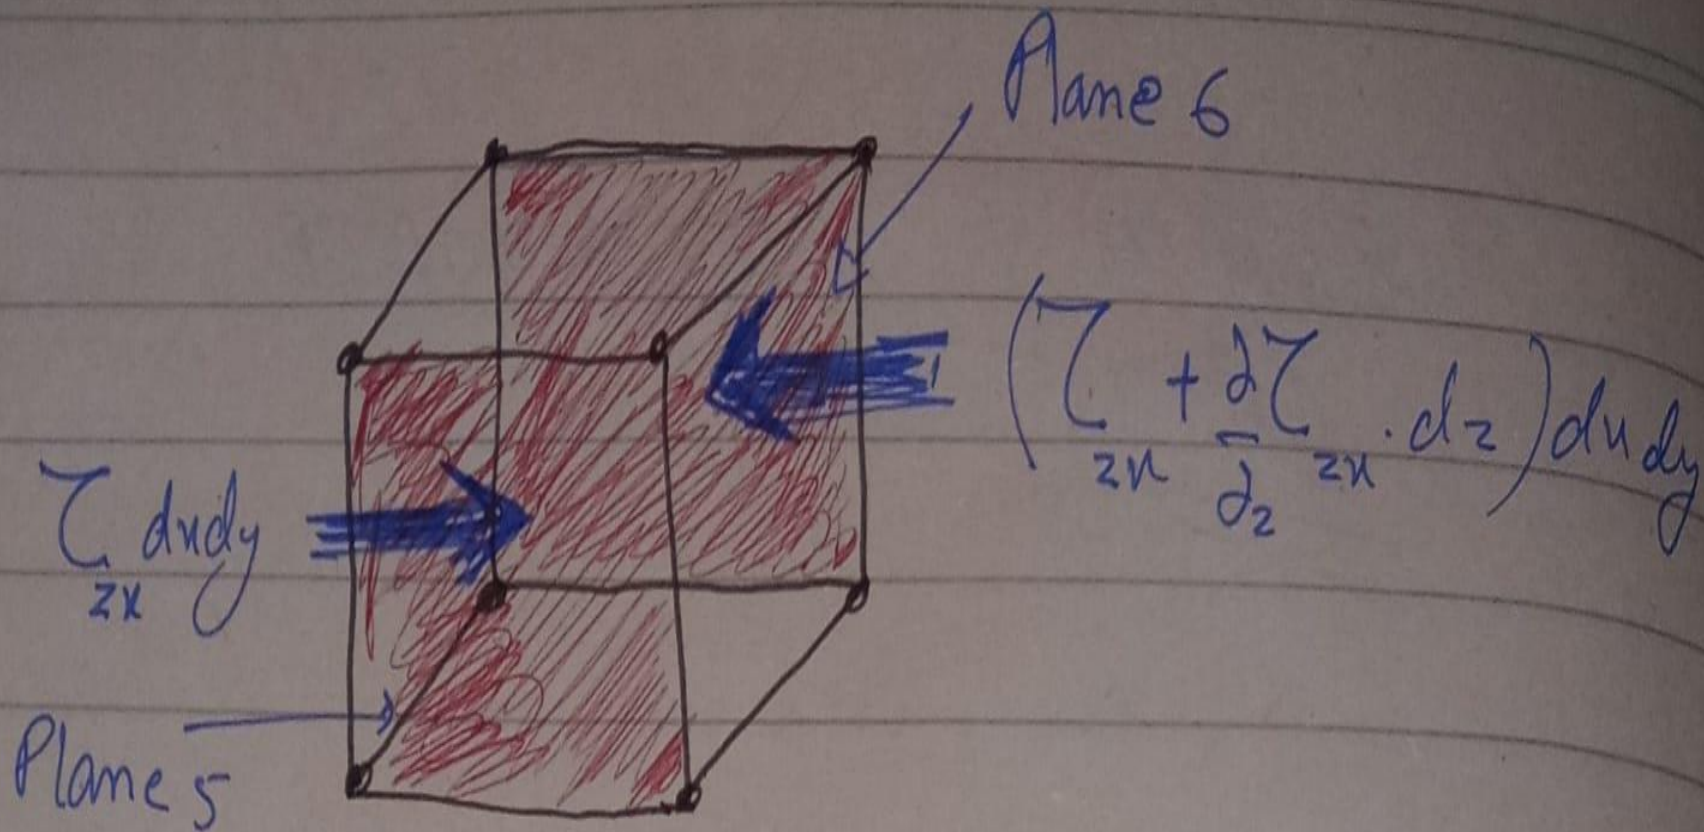 Plane 6
(τzx + ∂τzx/∂z . dz) dx dy
τzx dx dy
Plane 5